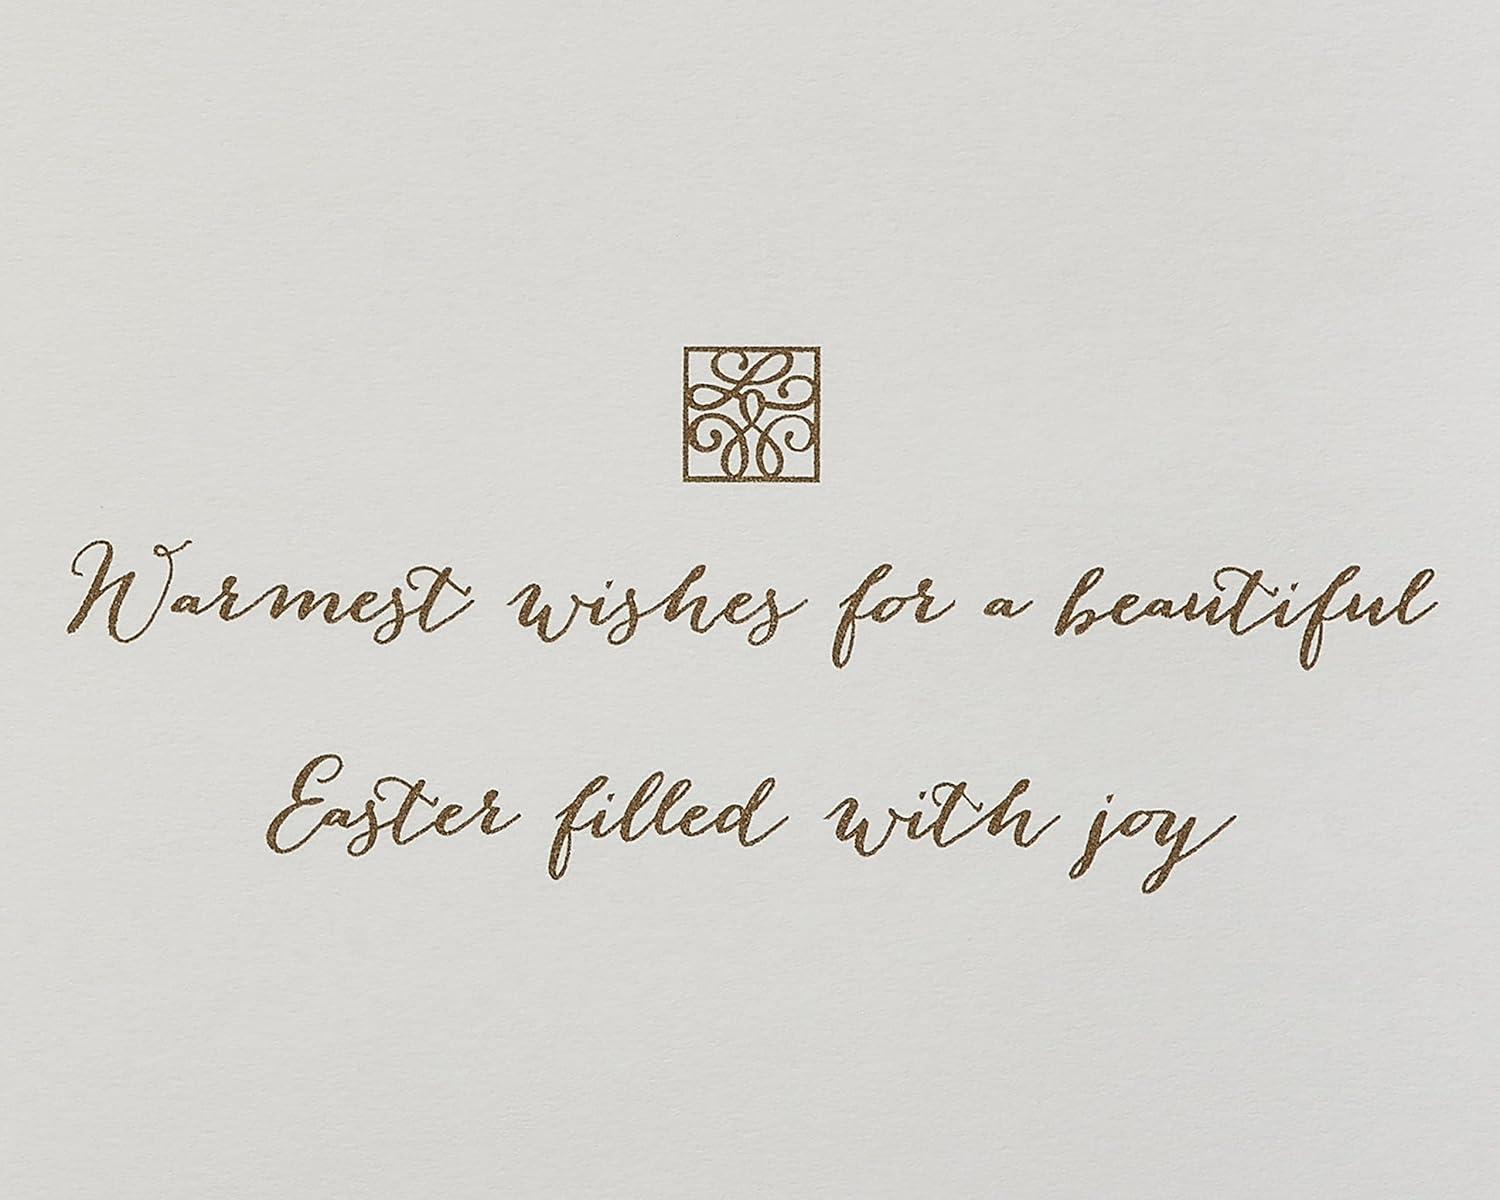 Warmest wishes for a beautiful
Easter filled with joy